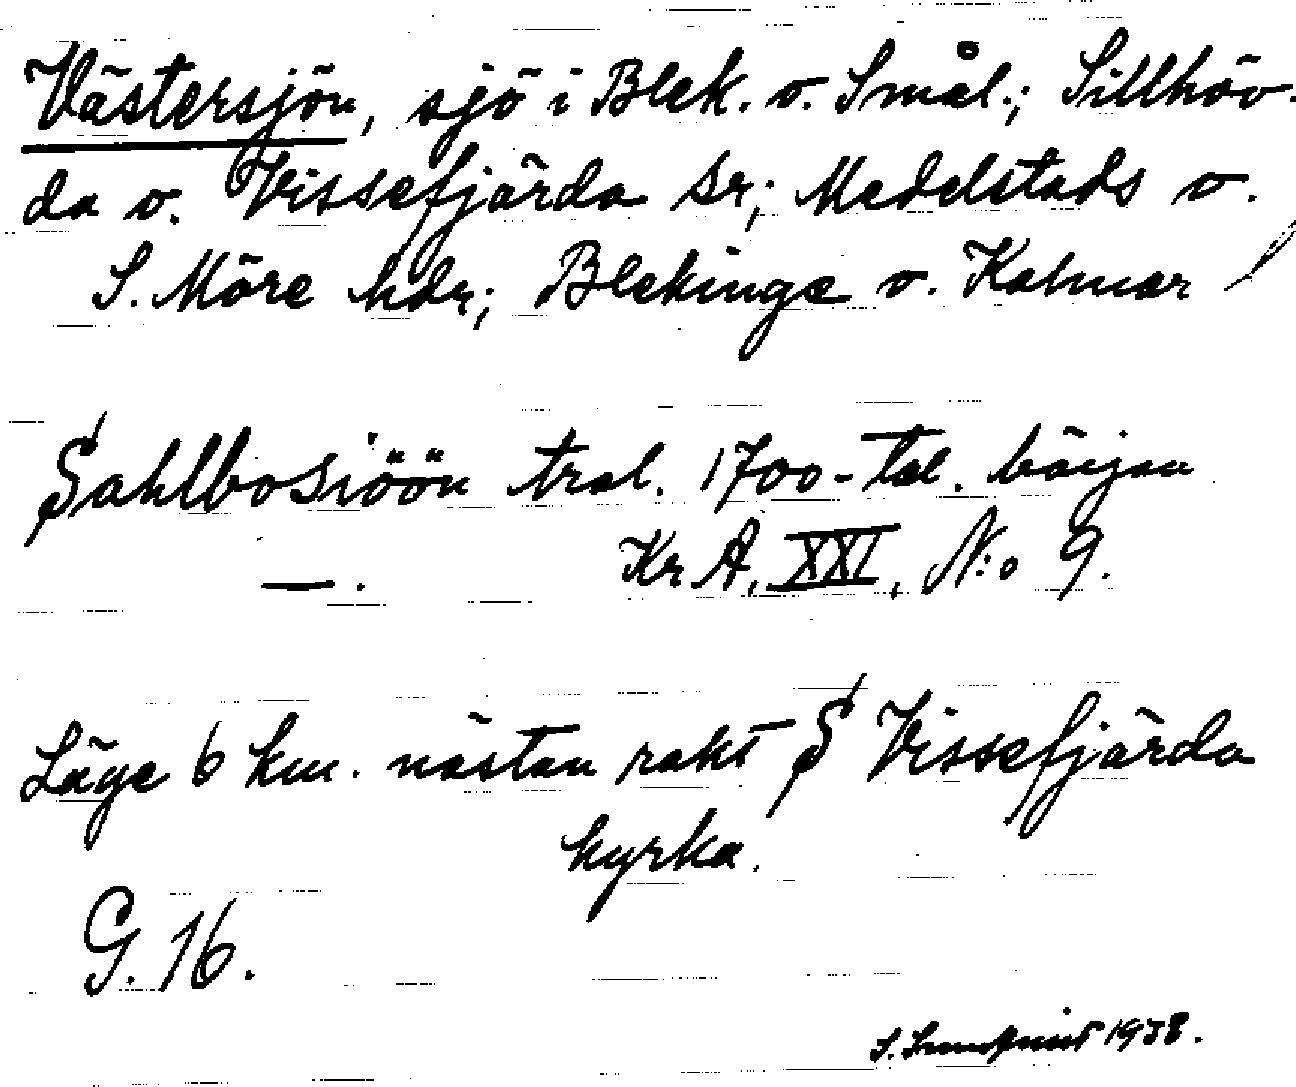 Västersjön, sjö i Blek. o. Smål.; Sillhöv-
da o. Vissefjärda sr; Medelstads o.
S. Möre hdr; Blekinge o. Kalmar l
Sahlbosiöön trol. 1700-tal. början
—. Kr. A. XXI, N:o 9.
Läge 6 km. nästan rakt S Vissefjärda
kyrka.
G. 16.
1938.